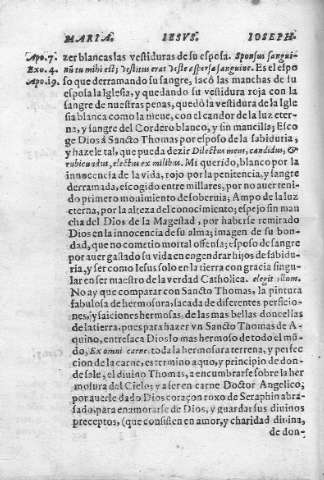 MARIA. IESVS. IOSEPH.
Apo. 7. zer blancas las vestiduras de su esposa. Sponsus sangui-
Exo. 4. nū tu mihi est; vestitus erat veste aspersa sanguine. Es el espo
Apo. 19. so que derramando su sangre, sacò las manchas de su
esposa la Iglesia, y quedando su vestidura roja con la
sangre de nuestras penas, quedò la vestidura de la Igle
sia blanca como la nieue, con el candor de la luz eter-
na, y sangre del Cordero blanco, y sin mancilla; Esco
ge Dios á Sancto Thomas por esposo de la sabiduria,
y hazele tal, que pueda dezir Dilectus meus, candidus, &
rubicundus, electus ex milibus. Mi querido, blanco por la
innocencia de la vida, rojo por la penitencia, y sangre
derramada, escogido entre millares, por no auer teni-
do primero mouimiento de soberuia; Ampo de la luz
eterna, por la alteza del conocimiento; espejo sin man
cha del Dios de la Magestad, por haberse remirado
Dios en la innocencia de su alma; imagen de su bon-
dad, que no cometio mortal offensa; esposo de sangre
por auer gastado su vida en engendrar hijos de sabidu-
ria, y ser como Iesus solo en la tierra con gracia singu-
lar en ser maestro de la verdad Catholica. elegit illum.
No ay que comparar con Sancto Thomas, la pintura
fabulosa de hermosura, sacada de diferentes perficio-
nes, y faiciones hermosas, de las mas bellas doncellas
de la tierra, pues para hazer vn Sancto Thomas de A-
quino, entresaca Dios lo mas hermoso de todo el mũ-
do, Ex omni carne, toda la hermosura terrena, y perfec-
cion de la carne, es termino a quo, y principio de don-
de sale, el diuino Thomas, a encumbrarse sobre la her
mosura del Cielo; y a ser en carne Doctor Angelico;
por auerle dado Dios coraçon roxo de Seraphin abra-
sado, para enamorarse de Dios, y guardar sus diuinos
preceptos, (que consisten en amor, y charidad diuina,
de don-